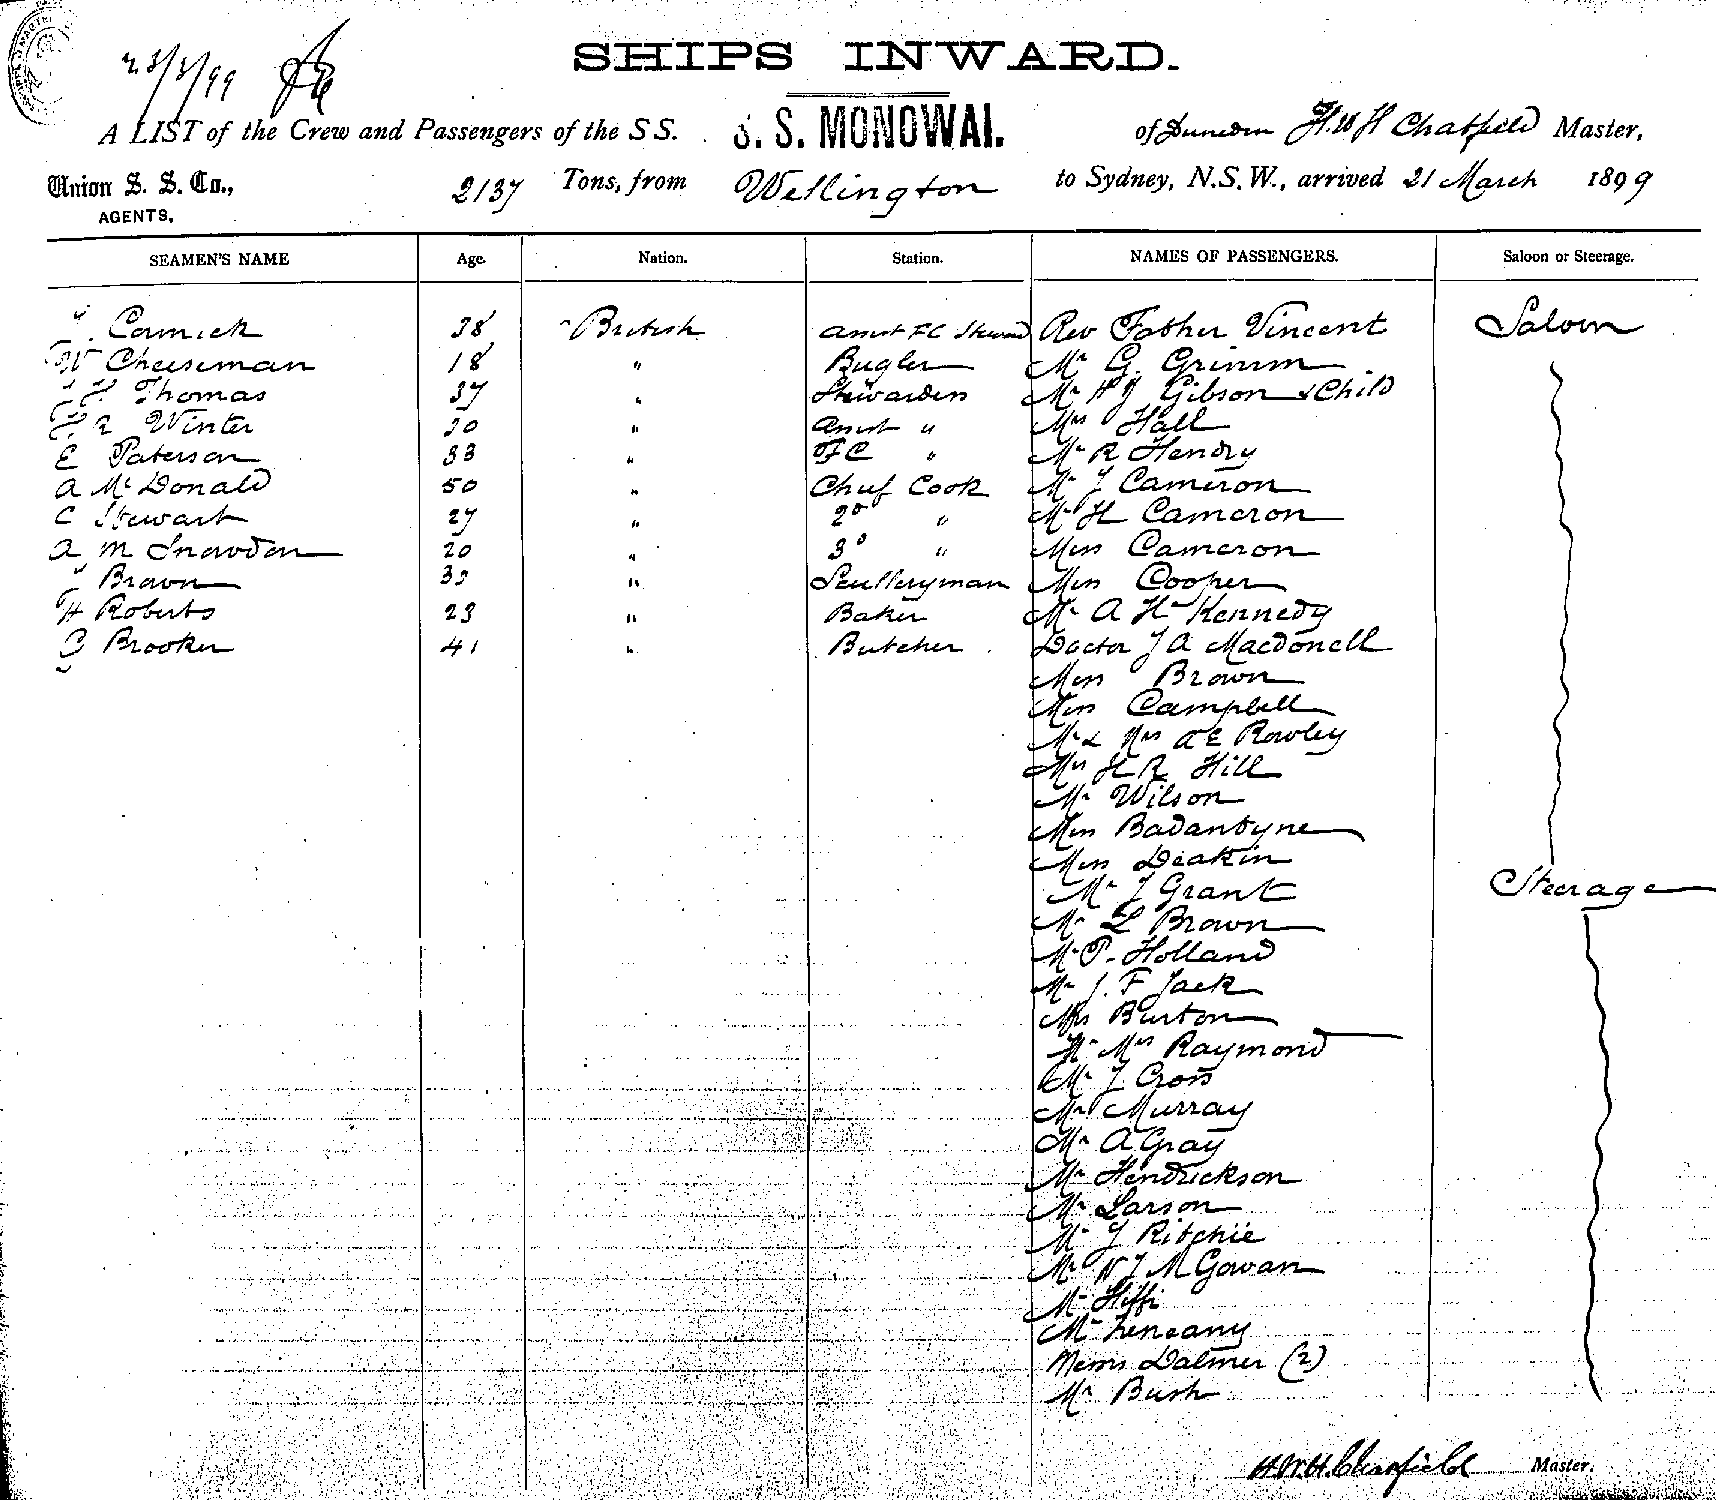 23/3/99
SHIPS INWARD.
A LIST of the Crew and Passengers of the SS. S. S. MONOWAI. of Dunedin H.W.H Chatfield Master,
Union S. S. Co., 2137 Tons, from Wellington to Sydney, N.S.W., arrived 21 March 1899
AGENTS,
SEAMEN'S NAME Age. Nation. Station. NAMES OF PASSENGERS. Saloon or Steerage.
Cormick 38 British Assist FC Steward Rev Father Vincent Saloon
W Cheeseman 18 " Bugler Mr G. Grimm
Thomas 37 " Stewardess Mr H J Gibson & Child
R Winter 30 " Assist " Mrs Hall
E Paterson 33 " FC " Mr R Hendry
A McDonald 50 " Chief Cook Mr J Cameron
C Stewart 27 " 2d " Mr H Cameron
A M Snowdon 20 " 3d " Miss Cameron
Brown " Sculleryman Miss Cooper
H Roberts 23 " Baker Mr A H Kennedy
C Brooker 41 " Butcher Doctor J A Macdonell
Miss Brown
Miss Campbell
Mr & Mrs A E Rowley
Mrs H R Hill
Mr Wilson
Miss Badantyne
Miss Deakin
Mr J Grant Steerage
Mr L Brown
Mr P. Holland
Mr J. F Jack
Mrs Burton
Mr Mrs Raymond
Mr J Cross
Mr Murray
Mr A Gray
Mr Hendrickson
Mr Larson
Mr J Ritchie
Mr W J McGowan
Mr
Mr
Messrs Dalmer (2)
Mr Bush
H.W.H. Chatfield Master.